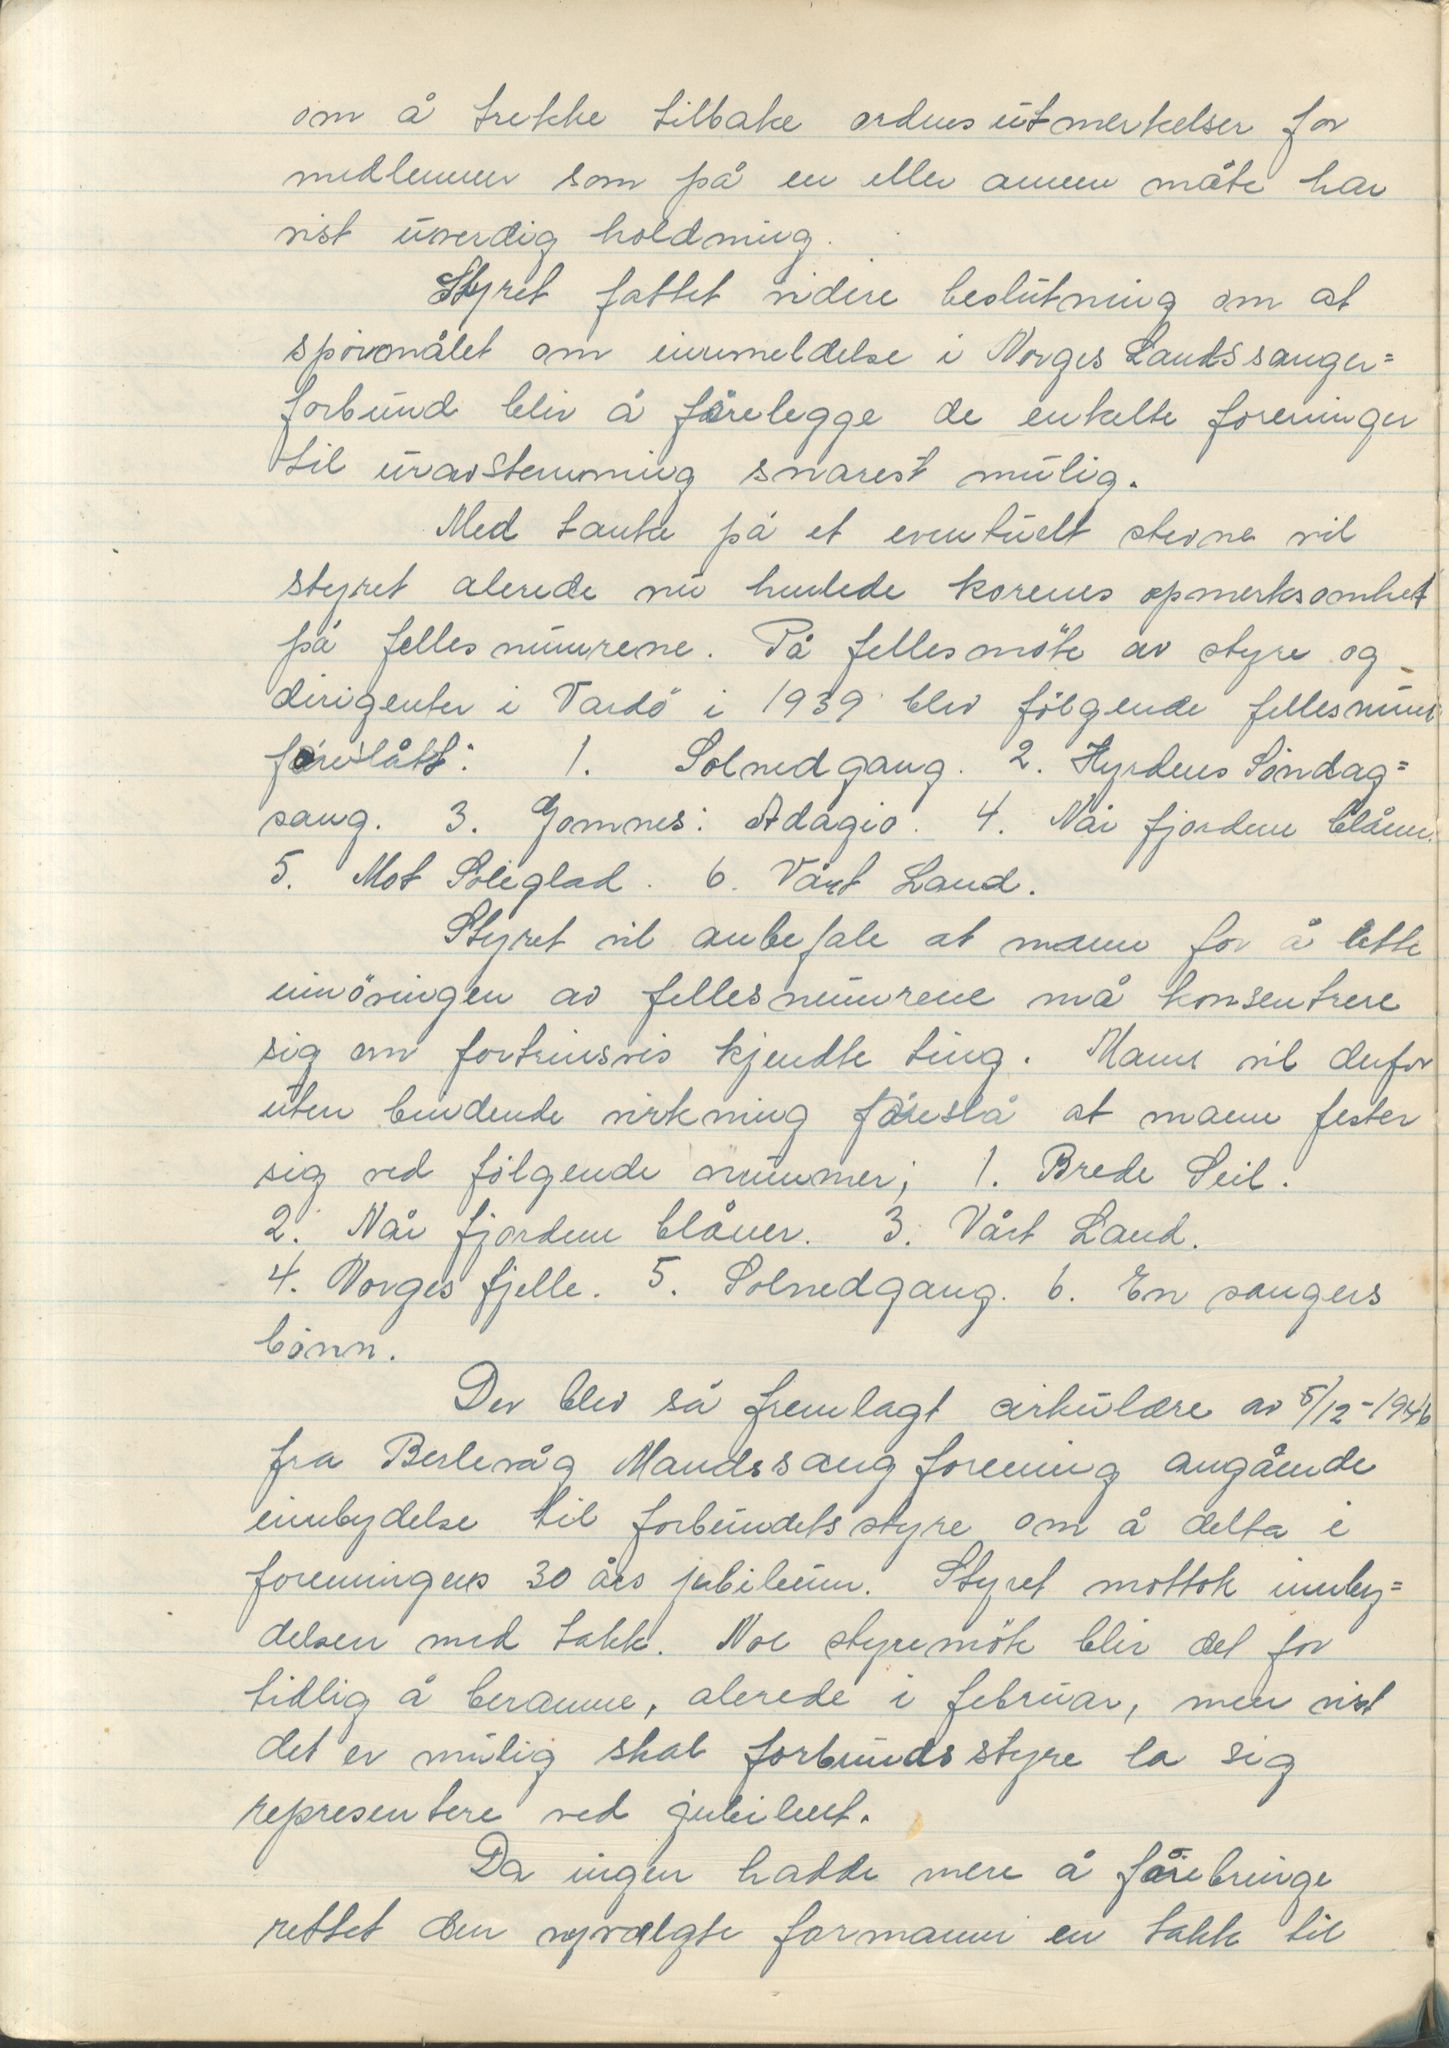 om å trekke tilbake ordensutmerkelser for
medlemmer som på en eller annen måte har
vist uverdig holdning.
Styret fattet videre beslutning om at
spörsmålet om innmeldelse i Norges Landssanger=
forbund blir å förelegge de enkelte foreninger
til uravstemming snarest mulig.
Med tanke på et eventuelt stevne vil
styret alerede nu henlede korenes opmerksomhet
på fellesnumrene. På fellesmöte av styre og
dirigenter i Vardö i 1939 blev fölgende fellesnum
foreslått: 1. Solnedgang. 2. Hyrdens Söndag=
sang. 3. Gomnes: Adagio. 4. Når fjordene blåner.
5. Mot Soleglad. 6. Vårt Land.
Styret vil anbefale at mann for å lette
innöringen av fellesnumrene må konsentrere
sig om fortrinsvis kjendte ting. Mann vil derfor
uten bindende virkning föreslå at mann fester
sig ved fölgende nummer; 1. Brede Seil.
2. Når fjordene blåner. 3. Vårt Land.
4. Norges fjelle. 5. Solnedgang. 6. En sangers
bönn.
Der blev så fremlagt cirkulære av 5/12-1946
fra Berlevåg Mandssangforening angående
innbydelse til forbundets styre om å delta i
foreningens 30 års jubileum. Styret mottok innby=
delsen med takk. Noe styremöte blir det for
tidlig å beramme, alerede i februar, men vist
det er mulig skal forbundsstyre la sig
representere ved jubileet.
Da ingen hadde mere å förebringe
rettet den nyvalgte formann en takk til